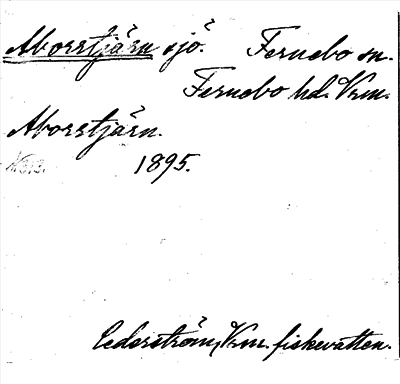 Aborrtjärn sjö. Fernebo sn.
Fernebo hd. Vrm.
Aborrtjärn.
1895.
Cederström, Vrm. fiskevatten.